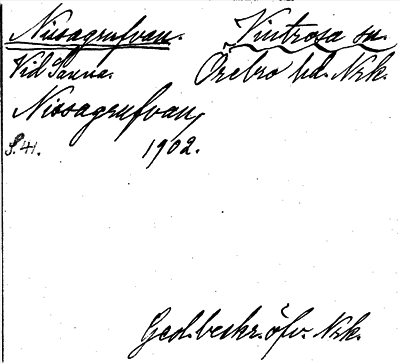 Nissagrufvan. Vintrosa sn.
Vid Sanna. Örebro hd. Nrk.
Nissagrufvan
S. 41. 1902.
Geol. beskr. öfv. Nrk.